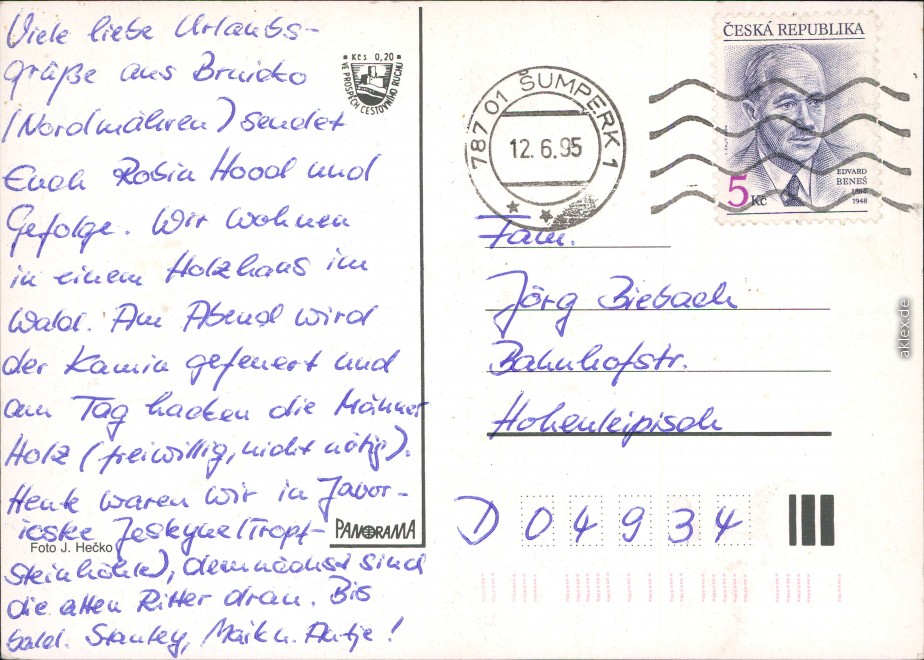 Viele liebe Urlaubs-
grüße aus Brnicko
(Nordmähren) sendet
Euch Robin Hood und
Gefolge. Wir wohnen
in einem Holzhaus im
Wald. Am Abend wird
der Kamin gefeuert und
am Tag hacken die Männer
Holz (freiwillig, nicht nötig).
Heute waren wir in Javor-
icske Jeskyne (Tropf-
steinhöhle), demnächst sind
die alten Ritter dran. Bis
bald. Stanley, Maik u. Antje!
Foto J. Hečko
PANORAMA
Kčs 0,20
VE PROSPĚCH CESTOVNÍHO RUCHU
787 01 ŠUMPERK 1
12.6.95
ČESKÁ REPUBLIKA
EDVARD
BENEŠ
1884
1948
5 Kč
Fam.
Jörg Biebach
Bahnhofstr.
Hohenleipisch
D 04934
aklex.de